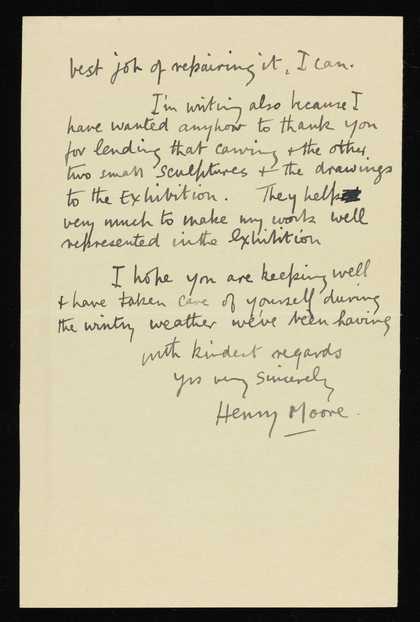 best job of repairing it, I can.
I'm writing also because I
have wanted anyhow to thank you
for lending that carving & the other
two small sculptures & the drawings
to the Exhibition. They help
very much to make my work well
represented in the Exhibition
I hope you are keeping well
& have taken care of yourself during
the wintry weather we've been having
with kindest regards
yrs very sincerely
Henry Moore.